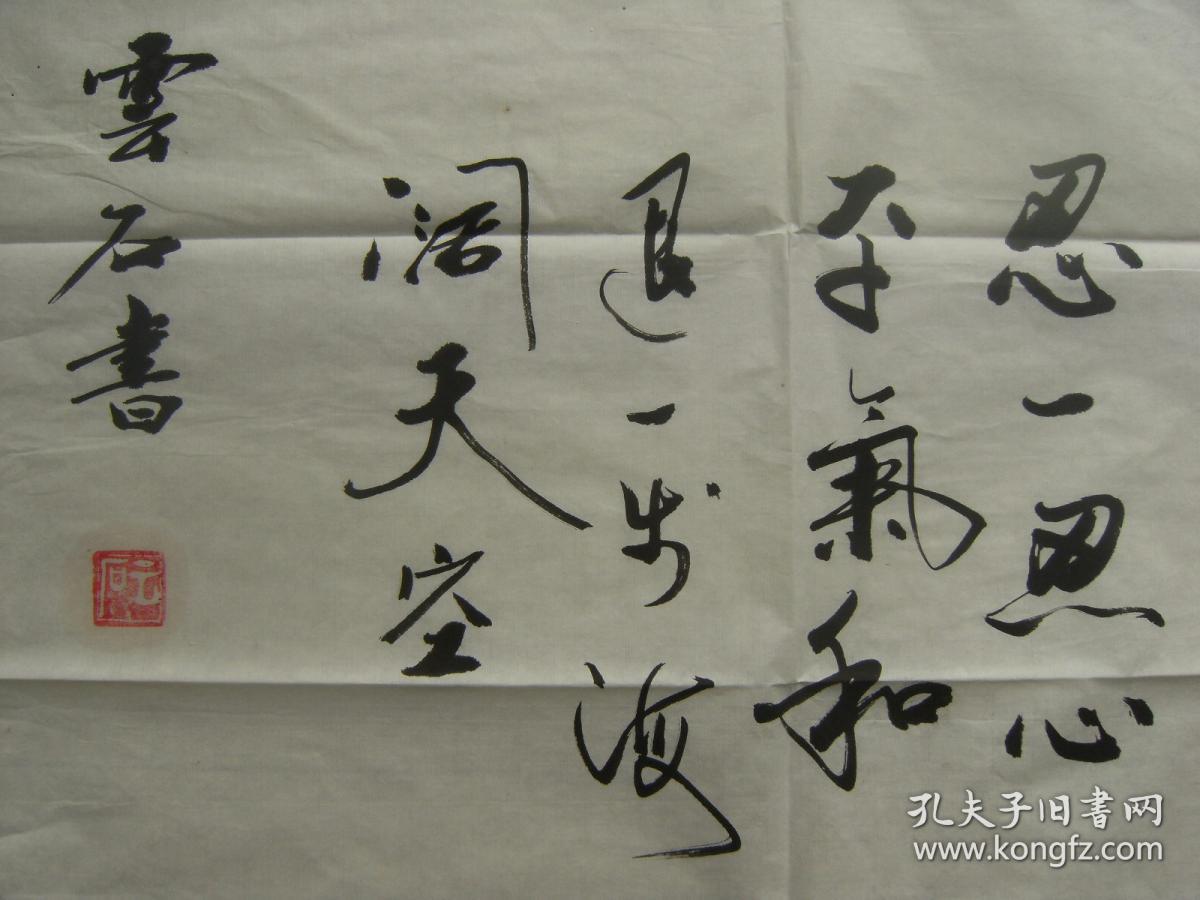 忍一忍心
平氣和
退一步海
阔天空
雲石書
孔夫子旧书网
www.kongfz.com